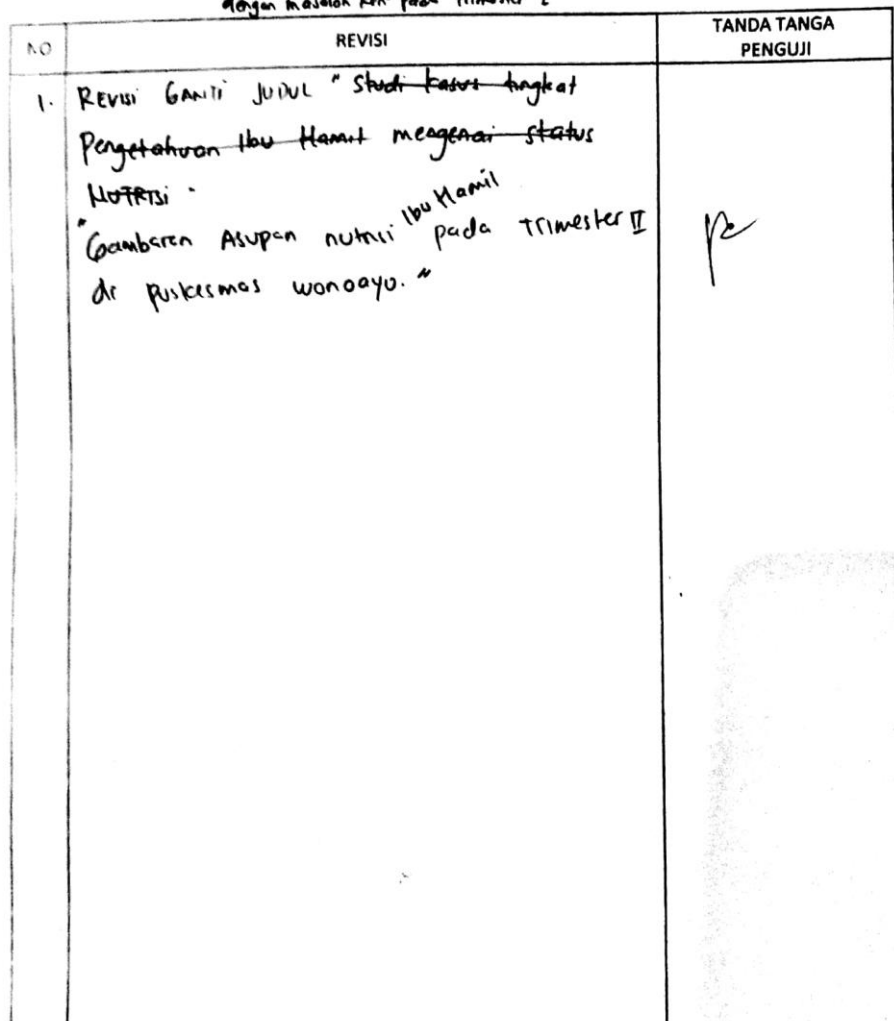 dengan masalah KEK pada Trimester 2
NO REVISI TANDA TANGA
PENGUJI
1. REVISI GANTI JUDUL " Studi kasus tingkat
Pengetahuan Ibu Hamil mengenai status
NUTRISI .
"Gambaran Asupan nutrisi Ibu Hamil pada Trimester II
di puskesmas wonoayu. "